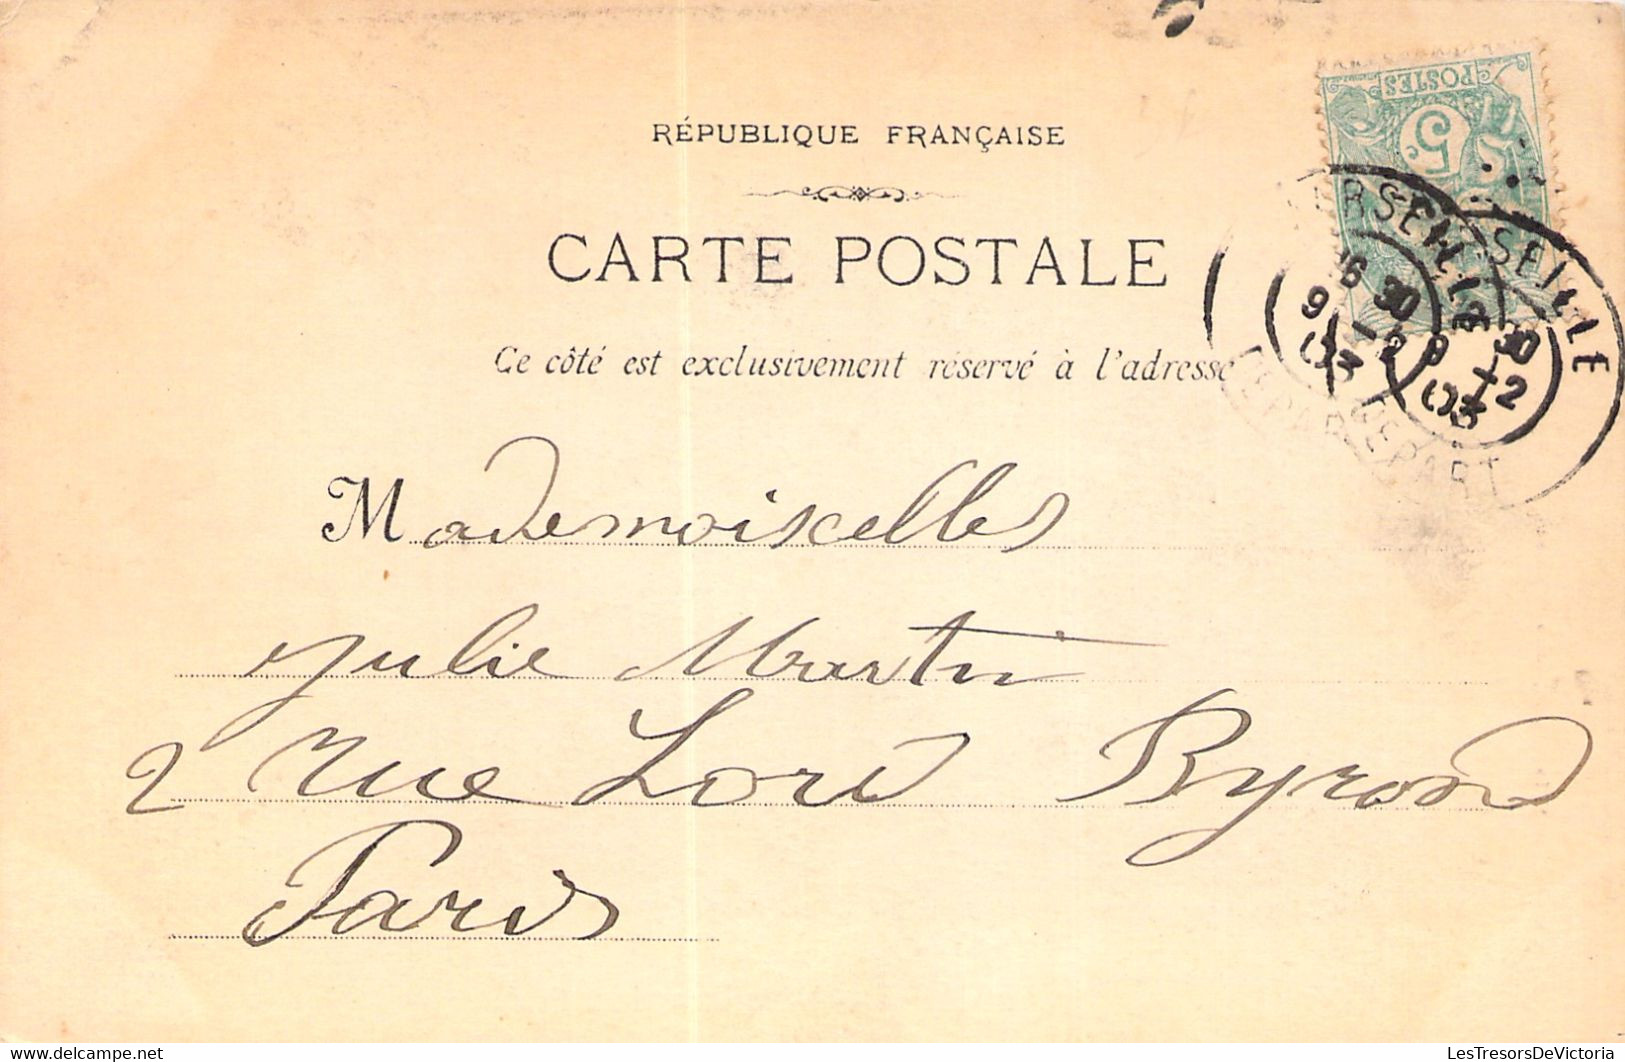 RÉPUBLIQUE FRANÇAISE
POSTES
5c
CARTE POSTALE
Ce côté est exclusivement réservé à l'adresse
MARSEILLE
16 30
9 -12
03
DEPART
SEILLE
30
9 -12
03
DEPART
Mademoiselles
Julie Martin
2 rue Lord Byron
Paris
LesTresorsDeVictoria